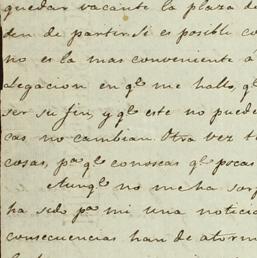 quedar vacante la plaza de
den de partir. Si es posible co
no es la mas conveniente á
legacion en qe. me hallo, qe. l
ser su fin, y qe. este no puede
cas no cambian. Otra vez t
cosas, pa. qe. conoscas qe. pocas
Aunqe. no me ha sorp
ha sido pa. mi una noticia
consecuencias han de atorm